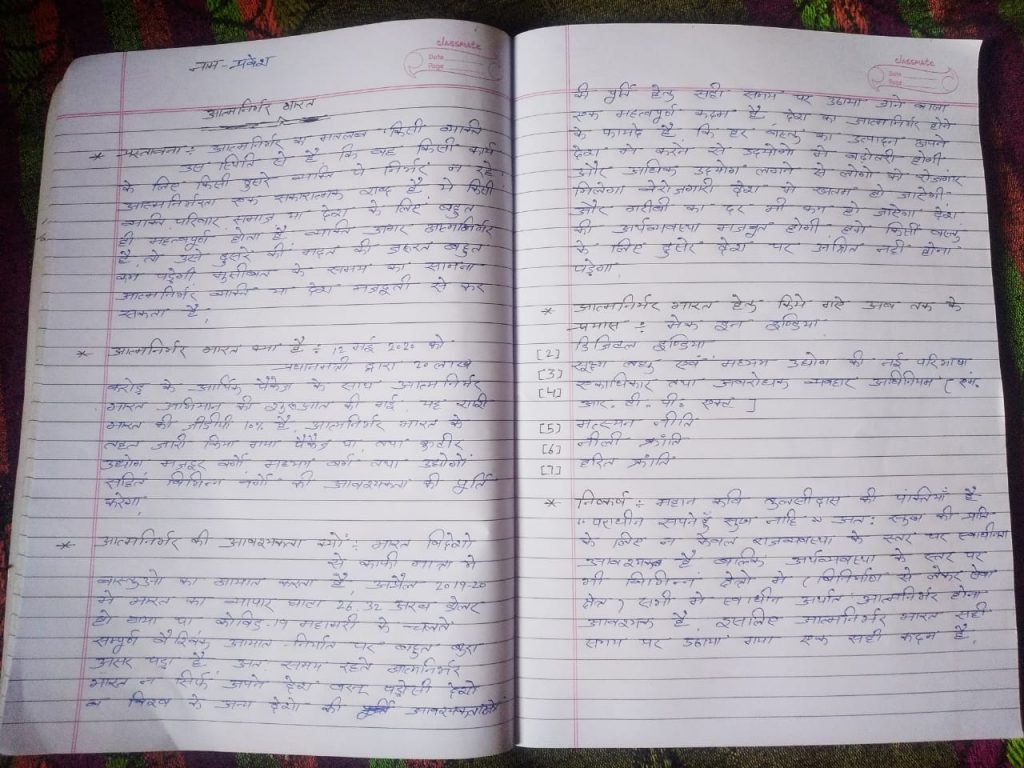 classmate
Date
Page
नाम - प्रवेश
आत्मनिर्भर भारत
* प्रस्तावना : आत्मनिर्भर का मतलब किसी व्यक्ति
उस स्थिति से है, कि वह किसी कार्य
के लिए किसी दुसरे व्यक्ति पे निर्भर न रहे
आत्मनिर्भरता एक सकारात्मक शब्द है ये किसी
व्यक्ति, परिवार, समाज या देश के लिए बहुत
ही महत्वपूर्ण होता है व्यक्ति अगर आत्मनिर्भर
है तो उसे दुसरे की मदत की जरूरत बहुत
कम पड़ेगी मुसीबत के समय का सामना
आत्मनिर्भर व्यक्ति या देश मजबूती से कर
सकता है,
* आत्मनिर्भर भारत क्या है : 12 मई 2020 को
प्रधानमंत्री द्वारा 20 लाख
करोड़ के आर्थिक पैकेज के साथ आत्मनिर्भर
भारत अभियान की शुरुआत की गई यह राशी
भारत की जीडीपी 10% है, आत्मनिर्भर भारत के
तहत जारी किया गया पैकेज था, तथा कुटीर
उद्योग मजदूर वर्गो, मध्यम वर्ग तथा उद्योगों
सहित विभिन्न वर्गो की आवश्यकता की पूर्ति
करेगा,
* आत्मनिर्भर की आवश्यकता क्यों : भारत विदेशो
से काफी मात्रा मे
वास्तुओ का आयात करता है, अप्रैल 2019-20
मे भारत का व्यापार घाटा 26.32 अरब डॉलर
हो गया था कोविड-19 महामारी के चलते
सम्पूर्ण वैश्विक आयात-निर्यात पर बहुत बुरा
असर पड़ा है अतः समय रहते आत्मनिर्भर
भारत न सिर्फ अपने देश वरन् पड़ोसी देशो
व विश्व के अन्य देशो की आवश्यकताओं
classmate
Date
Page
की पूर्ति हेतु सही समय पर उठाया जाने वाला
एक महत्वपूर्ण कदम है देश का आत्मनिर्भर होने
के फायदे है कि हर वस्तु का उत्पादन अपने
देश मे करने से उद्योगो मे बढोत्तरी होगी
और अधिक उद्योग लगाने से लोगो को रोजगार
मिलेगा बेरोजगारी देश से खतम हो जायेगी
और गरीबी का दर भी कम हो जाएगा देश
की अर्थव्यवस्था मजबूत होगी, हमे किसी वस्तु
के लिए दुसरे देश पर आश्रित नही होना
पड़ेगा,
* आत्मनिर्भर भारत हेतु किये गऐ अब तक के
प्रयास : मेक इन इण्डिया
[2] डिजिटल इण्डिया
[3] सूक्ष्म लघु एवं मध्यम उद्योग की नई परिभाषा
[4] एकाधिकार तथा अवरोधक व्यवहार अधिनियम ( एम.
आर. टी. पी. एक्ट ]
[5] मत्स्यन नीति
[6] नीली क्रांति
[7] हरित क्रांति
* निष्कर्ष : महान कवि तुलसीदास की पंक्तियाँ है
" पराधीन सपनेहुँ सुख नाहि " अतः सुख की प्राप्ति
के लिए न केवल राजव्यवस्था के स्तर पर स्वाधीनता
आवश्यक है बल्कि अर्थव्यवस्था के स्तर पर
भी विभिन्न क्षेत्रो मे ( विनिर्माण से लेकर सेवा
क्षेत्र ) सभी मे स्वाधीन अर्थात आत्मनिर्भर होना
आवश्यक है, इसलिए आत्मनिर्भर भारत सही
समय पर उठाया गया एक सही कदम है,